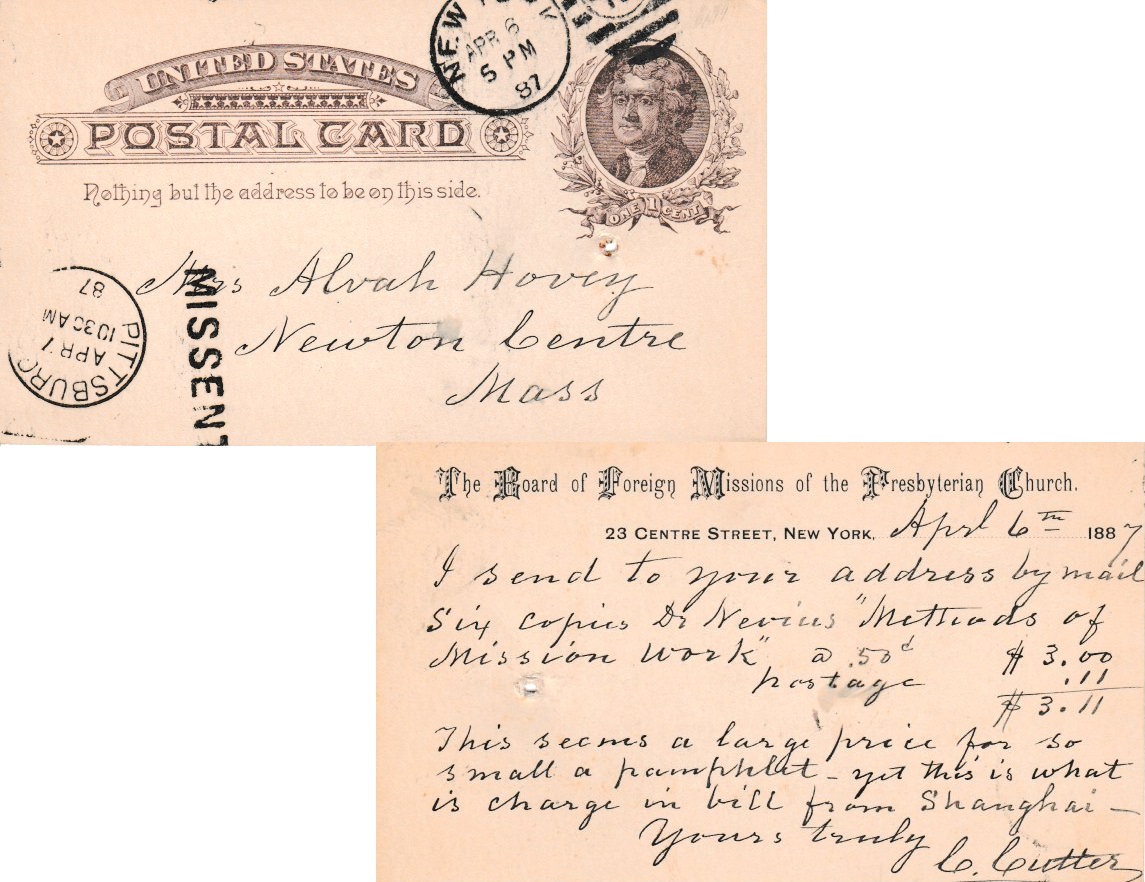 UNITED STATES
POSTAL CARD
Nothing but the address to be on this side.
NEW YORK
APR 6
5 PM
87
ONE 1 CENT
Mrs Alvah Hovey
Newton Centre
Mass
PITTSBURG
APR 7
1030AM
87
MISSENT
The Board of Foreign Missions of the Presbyterian Church.
23 CENTRE STREET, NEW YORK, Aprl 6th 1887
I send to your address by mail
Six copies Dr Nevius "Methods of
Mission Work" @ .50c $ 3.00
postage .11
$ 3.11
This seems a large price for so
small a pamphlet - yet this is what
is charge in bill from Shanghai -
Yours truly
C. Cutter